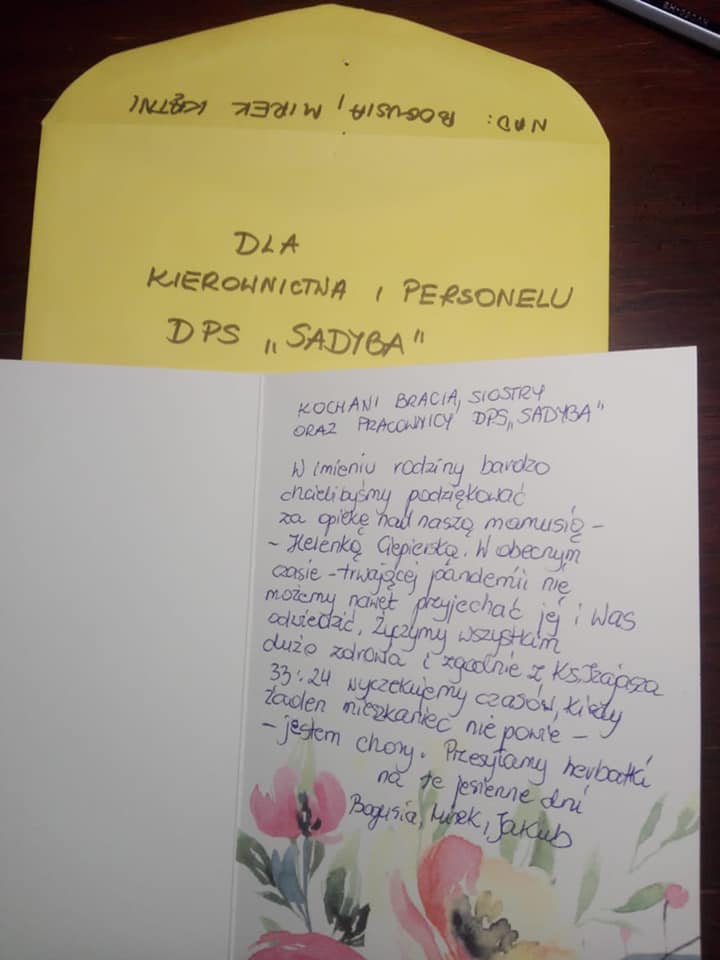 NAD: BOGUSIA, MIREK KĘTNI
DLA
KIEROWNICTWA I PERSONELU
DPS „SADYBA"
KOCHANI BRACIA, SIOSTRY
ORAZ PRACOWNICY DPS „SADYBA"
W imieniu rodziny bardzo
chcielibyśmy podziękować
za opiekę nad naszą mamusią –
– Helenką Ciepierską. W obecnym
czasie – trwającej pandemii nie
możemy nawet przyjechać jej i Was
odwiedzić. Życzymy wszystkim
dużo zdrowia i zgodnie z Ks. Izajasza
33:24 wyczekujemy czasów, kiedy
żaden mieszkaniec nie powie –
– jestem chory. Przesyłamy herbatki
na te jesienne dni
Bogusia, Mirek, Jakub